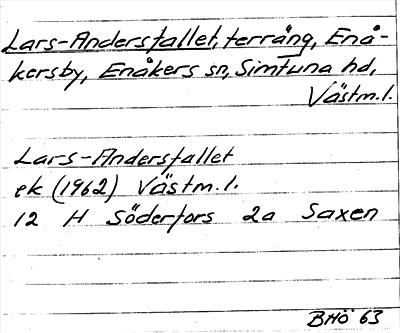 Lars-Andersfallet, terräng, Enå-
kersby, Enåkers sn, Simtuna hd,
Västm.l.
Lars-Andersfallet
ek (1962) Västm.l.
12 H Söderfors 2a Saxen
BHÖ 63